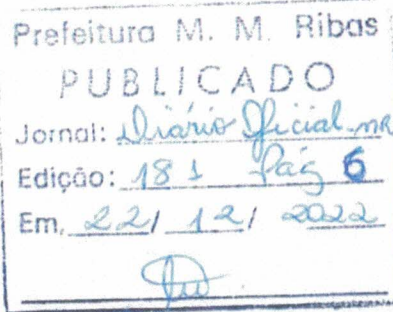 Prefeitura M. M. Ribas
PUBLICADO
Jornal: Diário Oficial-MR
Edição: 181 Pág 6
Em, 22/ 12/ 2022